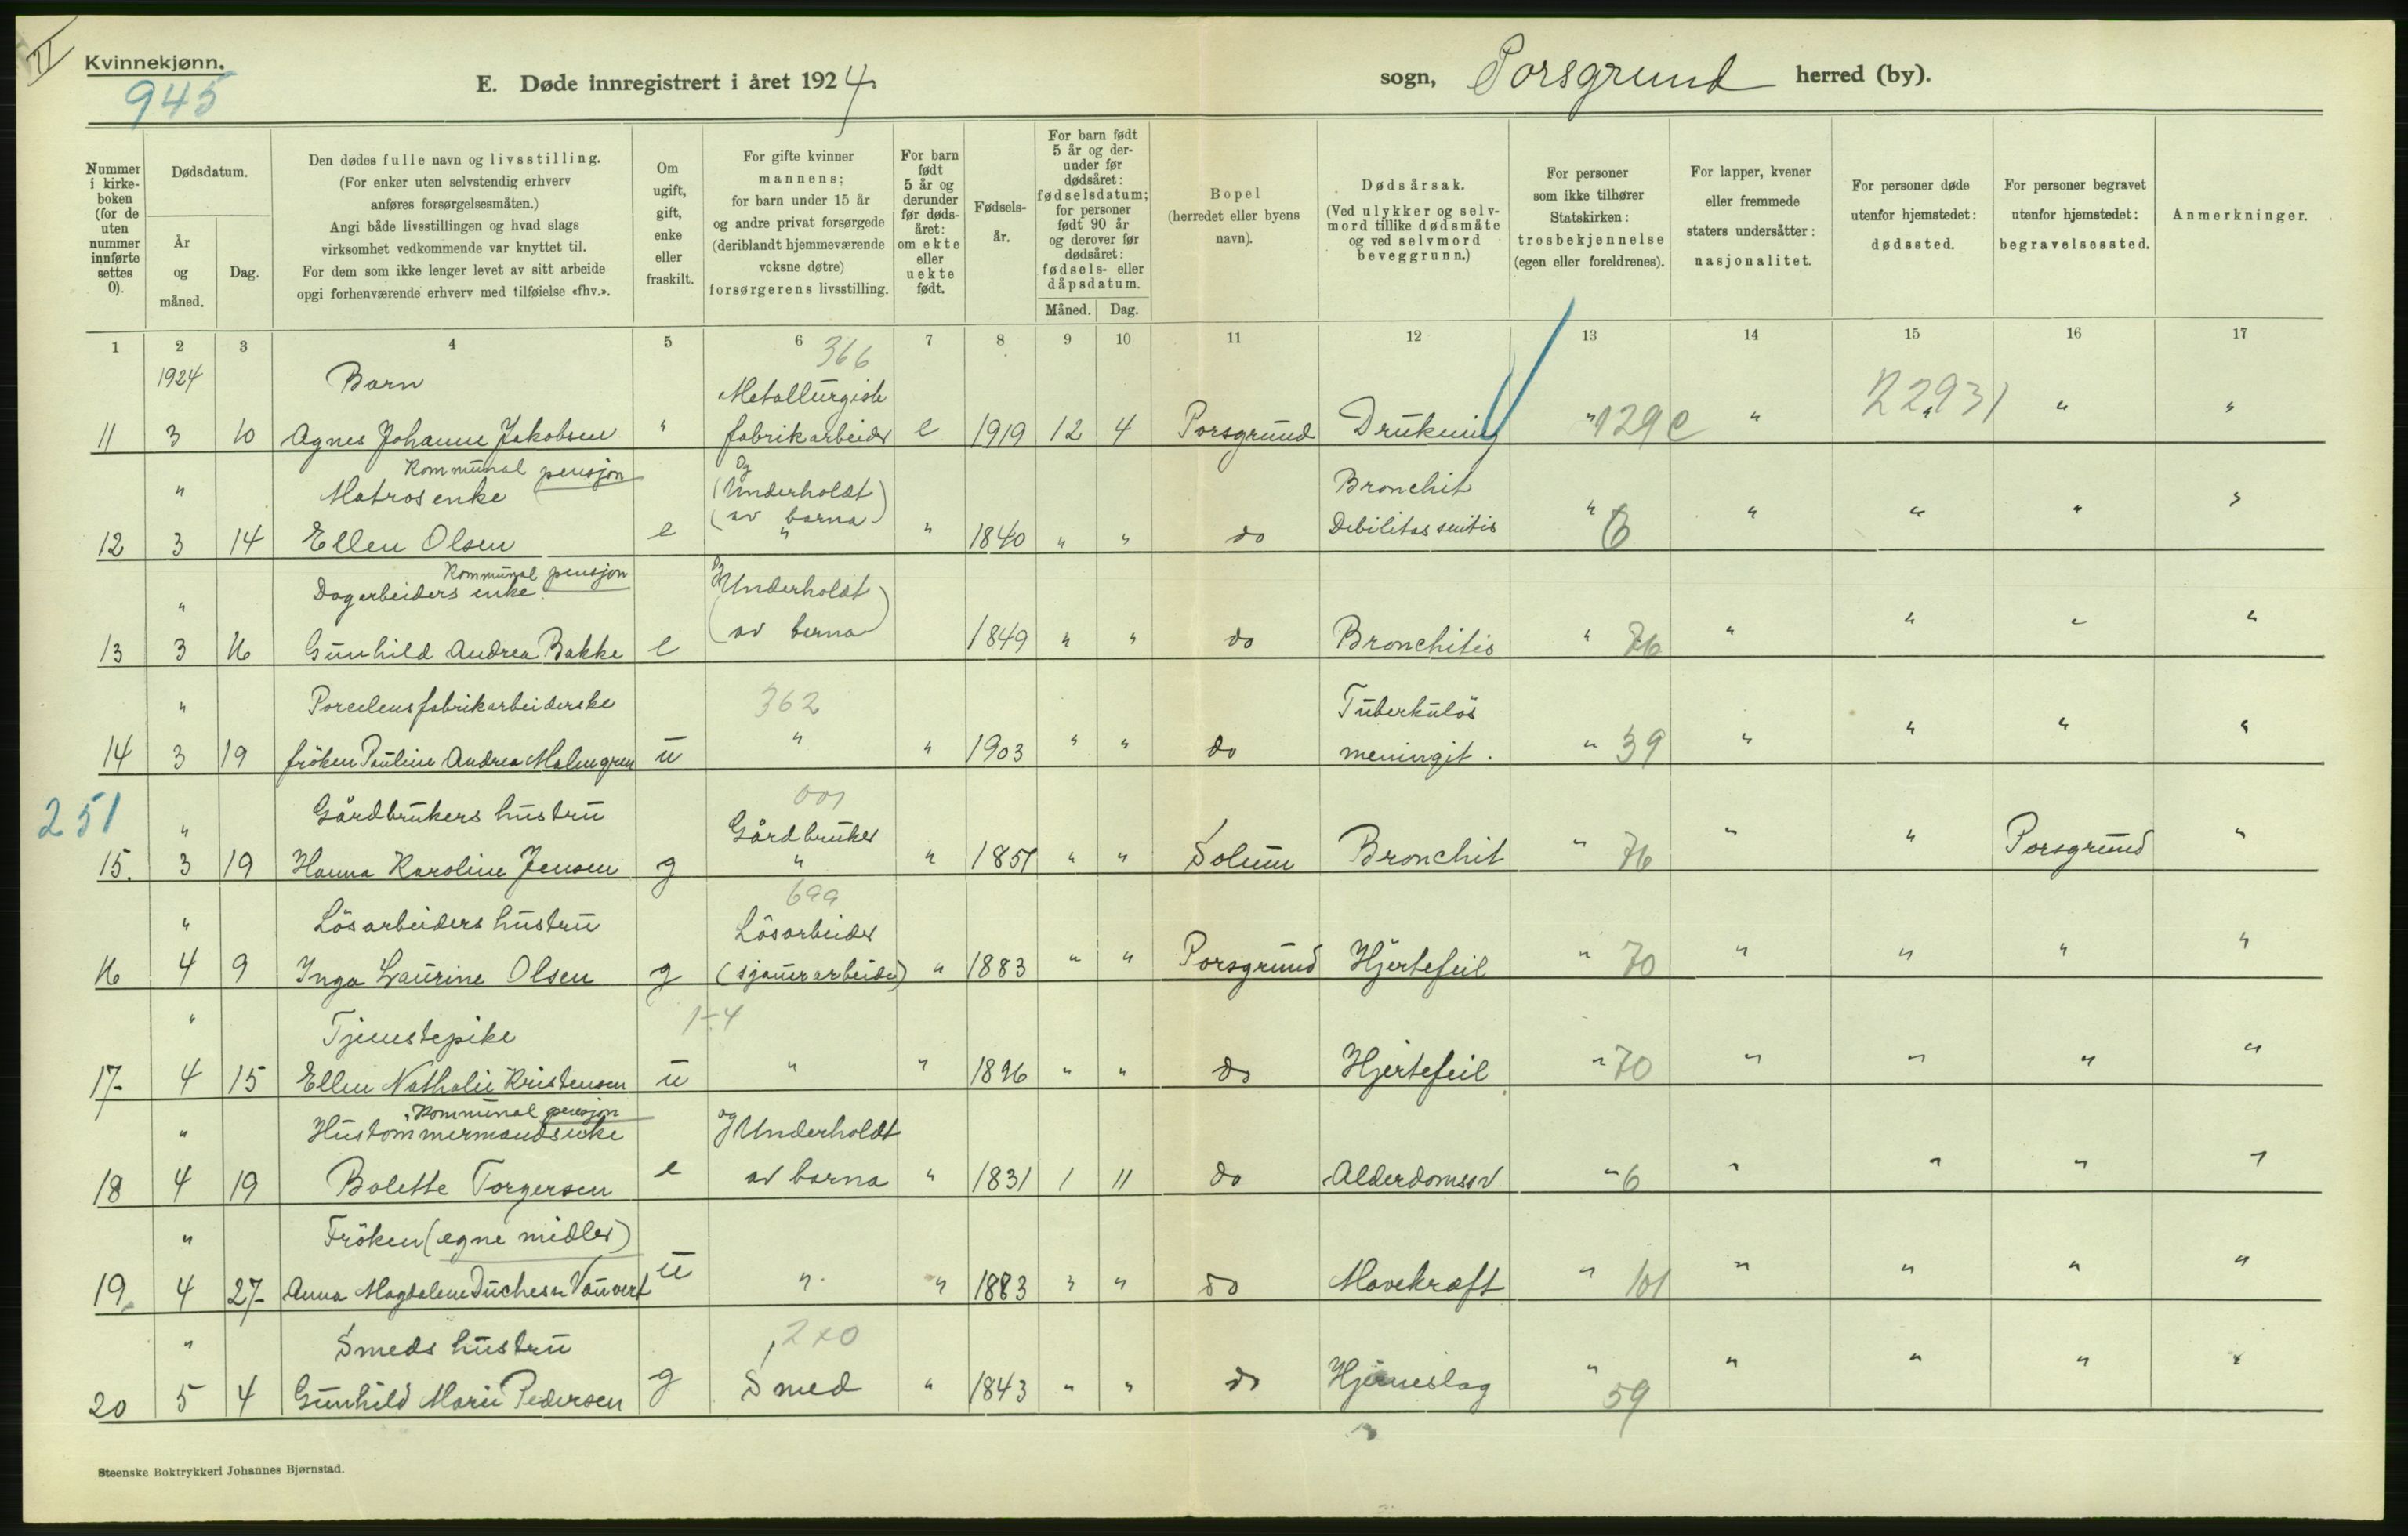 II
Kvinnekjønn.
945
E. Døde innregistrert i året 1924
sogn, Porsgrund herred (by).
Nummer i kirkeboken (for de uten nummer innførte settes 0).
Dødsdatum.
År og måned.
Dag.
Den dødes fulle navn og livsstilling.
(For enker uten selvstendig erhverv
anføres forsørgelsesmåten.)
Angi både livsstillingen og hvad slags
virksomhet vedkommende var knyttet til.
For dem som ikke lenger levet av sitt arbeide
opgi forhenværende erhverv med tilføielse «fhv.».
Om ugift, gift, enke eller fraskilt.
For gifte kvinner
mannens;
for barn under 15 år
og andre privat forsørgede
(deriblandt hjemmeværende
voksne døtre)
forsørgerens livsstilling.
For barn født 5 år og derunder før dødsåret: om ekte eller uekte født.
Fødselsår.
For barn født 5 år og derunder før dødsåret: fødselsdatum; for personer født 90 år og derover før dødsåret: fødsels- eller dåpsdatum.
Måned. Dag.
Bopel
(herredet eller byens
navn).
Dødsårsak.
(Ved ulykker og selvmord tillike dødsmåte
og ved selvmord
beveggrunn.)
For personer
som ikke tilhører
Statskirken:
trosbekjennelse
(egen eller foreldrenes).
For lapper, kvener
eller fremmede
staters undersåtter:
nasjonalitet.
For personer døde
utenfor hjemstedet:
dødssted.
For personer begravet
utenfor hjemstedet:
begravelsessted.
Anmerkninger.
1 2 3 4 5 6 7 8 9 10 11 12 13 14 15 16 17
1924 Barn 366 Metallurgisk
11 3 10 Agnes Johanne Jakobsen " fabrikarbeider e 1919 12 4 Porsgrund Drukning " 129 e " " " "
Kommunal pensjon
" Matrosenke Og (Underholdt av barna) Bronchit
12 3 14 Ellen Olsen e " " 1840 " " do Debilitas senitis " 6 " " " "
Kommunal pensjon
" Dagarbeiders enke Og (Underholdt
13 3 16 Gunhild Andrea Bakke e av barna) 1849 " " do Bronchitis " 76 " " " "
" Porcelensfabrikarbeiderske 362 Tuberkuløs
14 3 19 frøken Pauline Andrea Malmgren u " " 1903 " " do meningit. " 39 " " " "
251
" Gårdbrukers hustru 001 Gårdbruker
15. 3 19 Hanna Karoline Jensen g " " 1851 " " Solum Bronchit " 76 " " Porsgrund "
" Løsarbeiders hustru 699 Løsarbeider
16 4 9 Inga Laurine Olsen g (sjauerarbeider) " 1883 " " Porsgrund Hjertefeil " 70 " " " "
" Tjenstepike
17- 4 15 Ellen Nathalie Kristensen u " " 1896 " " do Hjertefeil " 70 " " " "
Kommunal pensjon
" Hustømmermandsenke og Underholdt
18 4 19 Bolette Torgersen e av barna " 1831 1 11 do Alderdomssv " 6 " " " "
" Frøken (egne midler)
19. 4 27- Anna Magdalene Duchesn Vauvert u " " 1883 " " do Mavekræft " 101 " " " "
" Smeds hustru
20 5 4 Gunhild Marie Pedersen g Smed " 1843 " " do Hjerneslag " 59 " " " "
Steenske Boktrykkeri Johannes Bjørnstad.